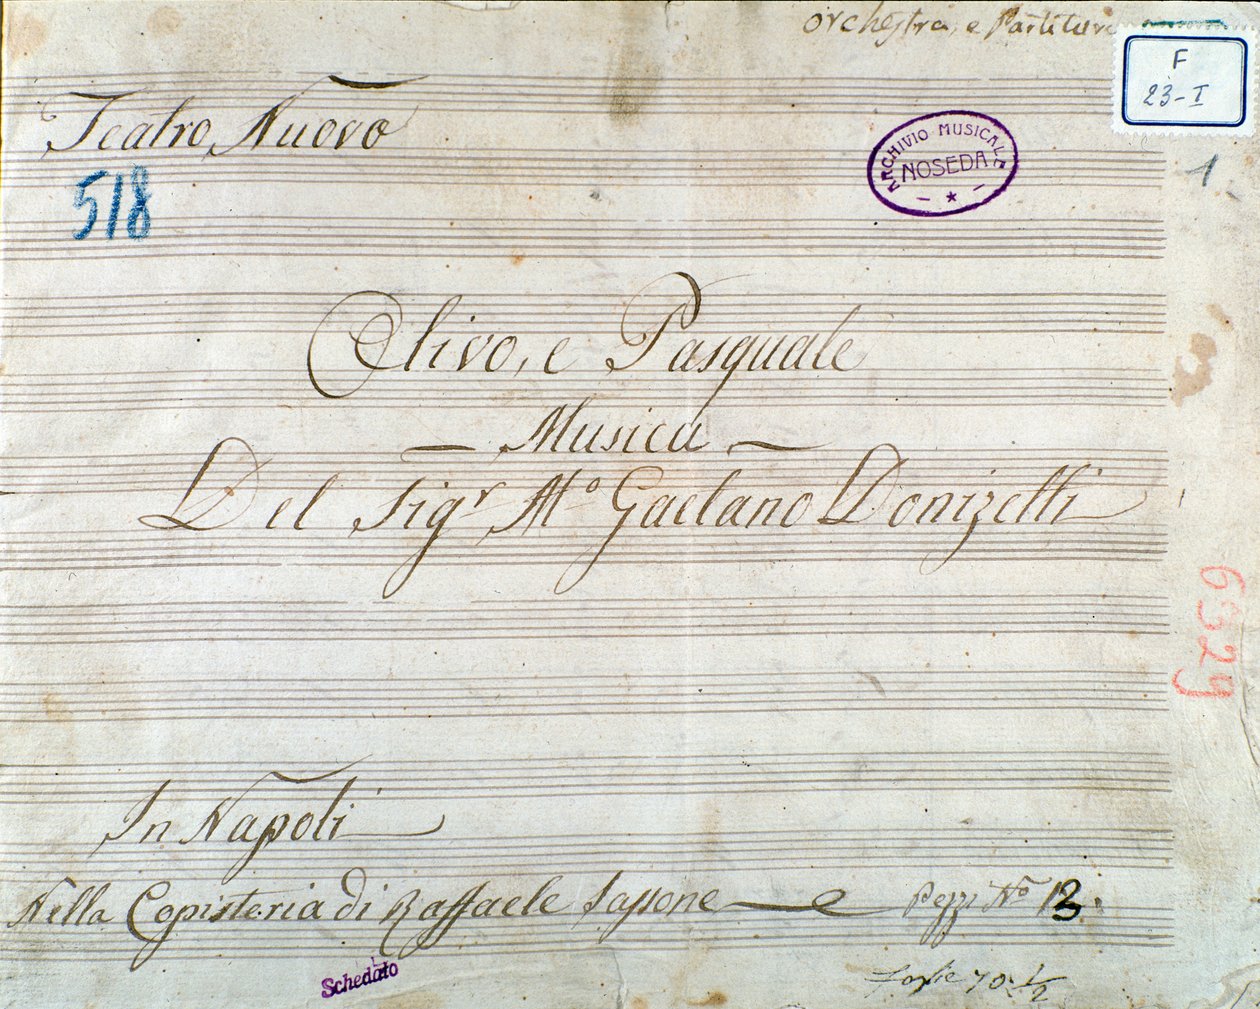 orchestra, e Partitura
F
23-I
Teatro Nuovo
ARCHIVIO MUSICALE
NOSEDA
1
518
Olivo, e Pasquale
Musica
Del Sigr Mo Gaetano Donizetti
6329
In Napoli
Nella Copisteria di Raffaele Sassone e Pezzi No 13.
Schedato
70 1/2